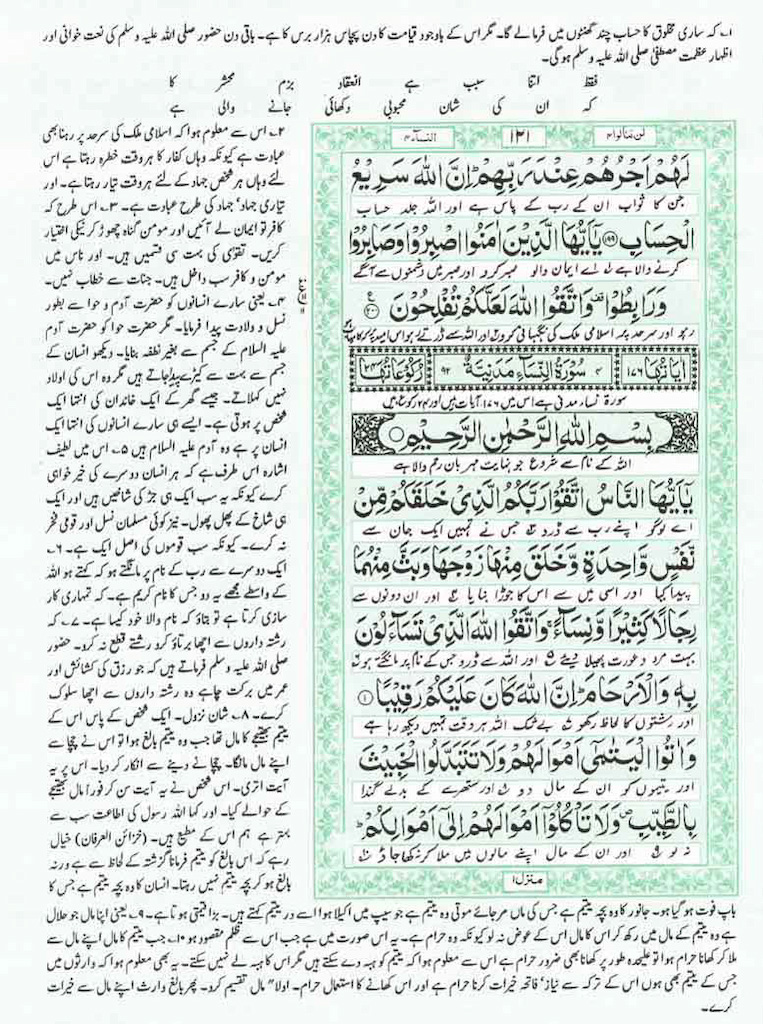 ۱۔ کہ ساری مخلوق کا حساب چند گھنٹوں میں فرمالے گا۔ مگر اس کے باوجود قیامت کا دن پچاس ہزار برس کا ہے۔ باقی دن حضور صلی اللہ علیہ وسلم کی نعت خوانی اور
اظہار عظمت مصطفیٰ صلی اللہ علیہ وسلم ہوگی۔
فقط اتنا سبب ہے انعقاد بزم محشر کا
کہ ان کی شان محبوبی دکھائی جانے والی ہے
لن تنالوا ۴
۱۲۱
النسآء ۴
لَهُمْ اَجْرُهُمْ عِنْدَ رَبِّهِمْ ؕ اِنَّ اللّٰهَ سَرِیْعُ
جن کا ثواب ان کے رب کے پاس ہے اور اللہ جلد حساب
الْحِسَابِ ﴿۱۹۹﴾ یٰۤاَیُّهَا الَّذِیْنَ اٰمَنُوا اصْبِرُوْا وَصَابِرُوْا
کرنے والا ہے اے ایمان والو صبر کرو اور صبر میں دشمنوں سے آگے
وَرَابِطُوْا ۫ وَاتَّقُوا اللّٰهَ لَعَلَّكُمْ تُفْلِحُوْنَ ﴿۲۰۰﴾
رہو اور سرحد پر اسلامی ملک کی نگہبانی کرو اور اللہ سے ڈرتے رہو اس امید پر کہ کامیاب ہو
اٰیَاتُهَا ۱۷۶
۴ سُوْرَةُ النِّسَآءِ مَدَنِیَّةٌ ۹۲
رُكُوْعَاتُهَا ۲۴
سورۃ نساء مدنی ہے اس میں ۱۷۶ آیات ہیں اور ۲۴ رکوع ہیں
بِسْمِ اللّٰهِ الرَّحْمٰنِ الرَّحِیْمِ
اللہ کے نام سے شروع جو نہایت مہربان رحم والا ہے
یٰۤاَیُّهَا النَّاسُ اتَّقُوْا رَبَّكُمُ الَّذِیْ خَلَقَكُمْ مِّنْ
اے لوگو اپنے رب سے ڈرو جس نے تمہیں ایک جان سے
نَّفْسٍ وَّاحِدَةٍ وَّخَلَقَ مِنْهَا زَوْجَهَا وَبَثَّ مِنْهُمَا
پیدا کیا اور اسی میں سے اس کا جوڑا بنایا اور ان دونوں سے
رِجَالًا كَثِیْرًا وَّنِسَآءً ۚ وَاتَّقُوا اللّٰهَ الَّذِیْ تَسَآءَلُوْنَ
بہت مرد و عورت پھیلا دیئے اور اللہ سے ڈرو جس کے نام پر مانگتے ہو
بِهٖ وَالْاَرْحَامَ ؕ اِنَّ اللّٰهَ كَانَ عَلَیْكُمْ رَقِیْبًا ﴿۱﴾
اور رشتوں کا لحاظ رکھو بے شک اللہ ہر وقت تمہیں دیکھ رہا ہے
وَاٰتُوا الْیَتٰمٰۤی اَمْوَالَهُمْ وَلَا تَتَبَدَّلُوا الْخَبِیْثَ
اور یتیموں کو ان کے مال دو اور ستھرے کے بدلے گندا
بِالطَّیِّبِ ۪ وَلَا تَاْكُلُوْۤا اَمْوَالَهُمْ اِلٰۤی اَمْوَالِكُمْ ؕ
نہ لو اور ان کے مال اپنے مالوں میں ملا کر نہ کھا جاؤ
منزل ۱
۲۔ اس سے معلوم ہوا کہ اسلامی ملک کی سرحد پر رہنا بھی
عبادت ہے کیونکہ وہاں کفار کا ہر وقت خطرہ رہتا ہے اس
لئے وہاں ہر شخص جہاد کے لئے ہر وقت تیار رہتا ہے۔ اور
تیاری جہاد، جہاد کی طرح عبادت ہے۔ ۳۔ اس طرح کہ
کافر تو ایمان لے آئیں اور مومن گناہ چھوڑ کر نیکی اختیار
کریں۔ تقویٰ کی بہت سی قسمیں ہیں۔ اور ناس میں
مومن و کافر سب داخل ہیں۔ جنات سے خطاب نہیں۔
۴۔ یعنی سارے انسانوں کو حضرت آدم و حوا سے بطور
نسل و ولادت پیدا فرمایا۔ مگر حضرت حوا کو حضرت آدم
علیہ السلام کے جسم سے بغیر نطفہ بنایا۔ دیکھو انسان کے
جسم سے بہت سے کیڑے پیدا ہو جاتے ہیں مگر وہ اس کی اولاد
نہیں کہلاتے۔ جیسے گھر کے ایک خاندان کی انتہا ایک
شخص پر ہوتی ہے۔ ایسے ہی سارے انسانوں کی انتہا ایک
انسان پر ہے وہ آدم علیہ السلام ہیں ۵۔ اس میں لطیف
اشارہ اس طرف ہے کہ ہر انسان دوسرے کی خیر خواہی
کرے کیونکہ یہ سب ایک ہی جڑ کی شاخیں ہیں اور ایک
ہی شاخ کے پھل پھول۔ نیز کوئی مسلمان نسل اور قومی فخر
نہ کرے۔ کیونکہ سب قوموں کی اصل ایک ہے۔ ۶۔
ایک دوسرے سے رب کے نام پر مانگتے ہو کہ کہتے ہو اللہ
کے واسطے مجھے یہ دو جس کا نام کریم ہے۔ کہ تمہاری کار
سازی کرتا ہے تو بتاؤ کہ نام والا خود کیسا ہے۔ ۷۔ کہ
رشتہ داروں سے اچھا برتاؤ کرو رشتے قطع نہ کرو۔ حضور
صلی اللہ علیہ وسلم فرماتے ہیں کہ جو رزق کی کشائش اور
عمر میں برکت چاہے وہ رشتہ داروں سے اچھا سلوک
کرے۔ ۸۔ شان نزول۔ ایک شخص کے پاس اس کے
یتیم بھتیجے کا مال تھا جب وہ یتیم بالغ ہوا تو اس نے چچا سے
اپنے مال مانگا۔ چچا نے دینے سے انکار کر دیا۔ اس پر یہ
آیت اتری۔ اس شخص نے یہ آیت سن کر فوراً مال بھتیجے
کے حوالے کیا۔ اور کہا اللہ رسول کی اطاعت سب سے
بہتر ہے ہم اس کے مطیع ہیں۔ (خزائن العرفان) خیال
رہے کہ اس بالغ کو یتیم فرمانا گزشتہ کے لحاظ سے ہے ورنہ
بالغ ہو کر بچہ یتیم نہیں رہتا۔ انسان کا وہ بچہ یتیم ہے جس کا
باپ فوت ہو گیا ہو۔ جانور کا وہ بچہ یتیم ہے جس کی ماں مر جائے موتی وہ یتیم ہے جو سیپ میں اکیلا ہو اسے در یتیم کہتے ہیں۔ بڑا قیمتی ہوتا ہے۔ ۹۔ یعنی اپنا مال جو حلال
ہے وہ یتیم کے مال میں رکھ کر اس کا مال اس کے عوض نہ لو کیونکہ وہ حرام ہے۔ یہ اس صورت میں ہے جب اس سے ظلم مقصود ہو ۱۰۔ جب یتیم کا مال اپنے مال سے
ملا کر کھانا حرام ہوا تو علیحدہ طور پر کھانا بھی ضرور حرام ہے اس سے معلوم ہوا کہ یتیم کو ہبہ دے سکتے ہیں مگر اس کا ہبہ لے نہیں سکتے۔ یہ بھی معلوم ہوا کہ وارثوں میں
جس کے یتیم بھی ہوں اس کے ترکہ سے نیاز، فاتحہ خیرات کرنا حرام ہے اور اس کھانے کا استعمال حرام۔ اولاً مال تقسیم کرو۔ پھر بالغ وارث اپنے مال سے خیرات
کرے۔